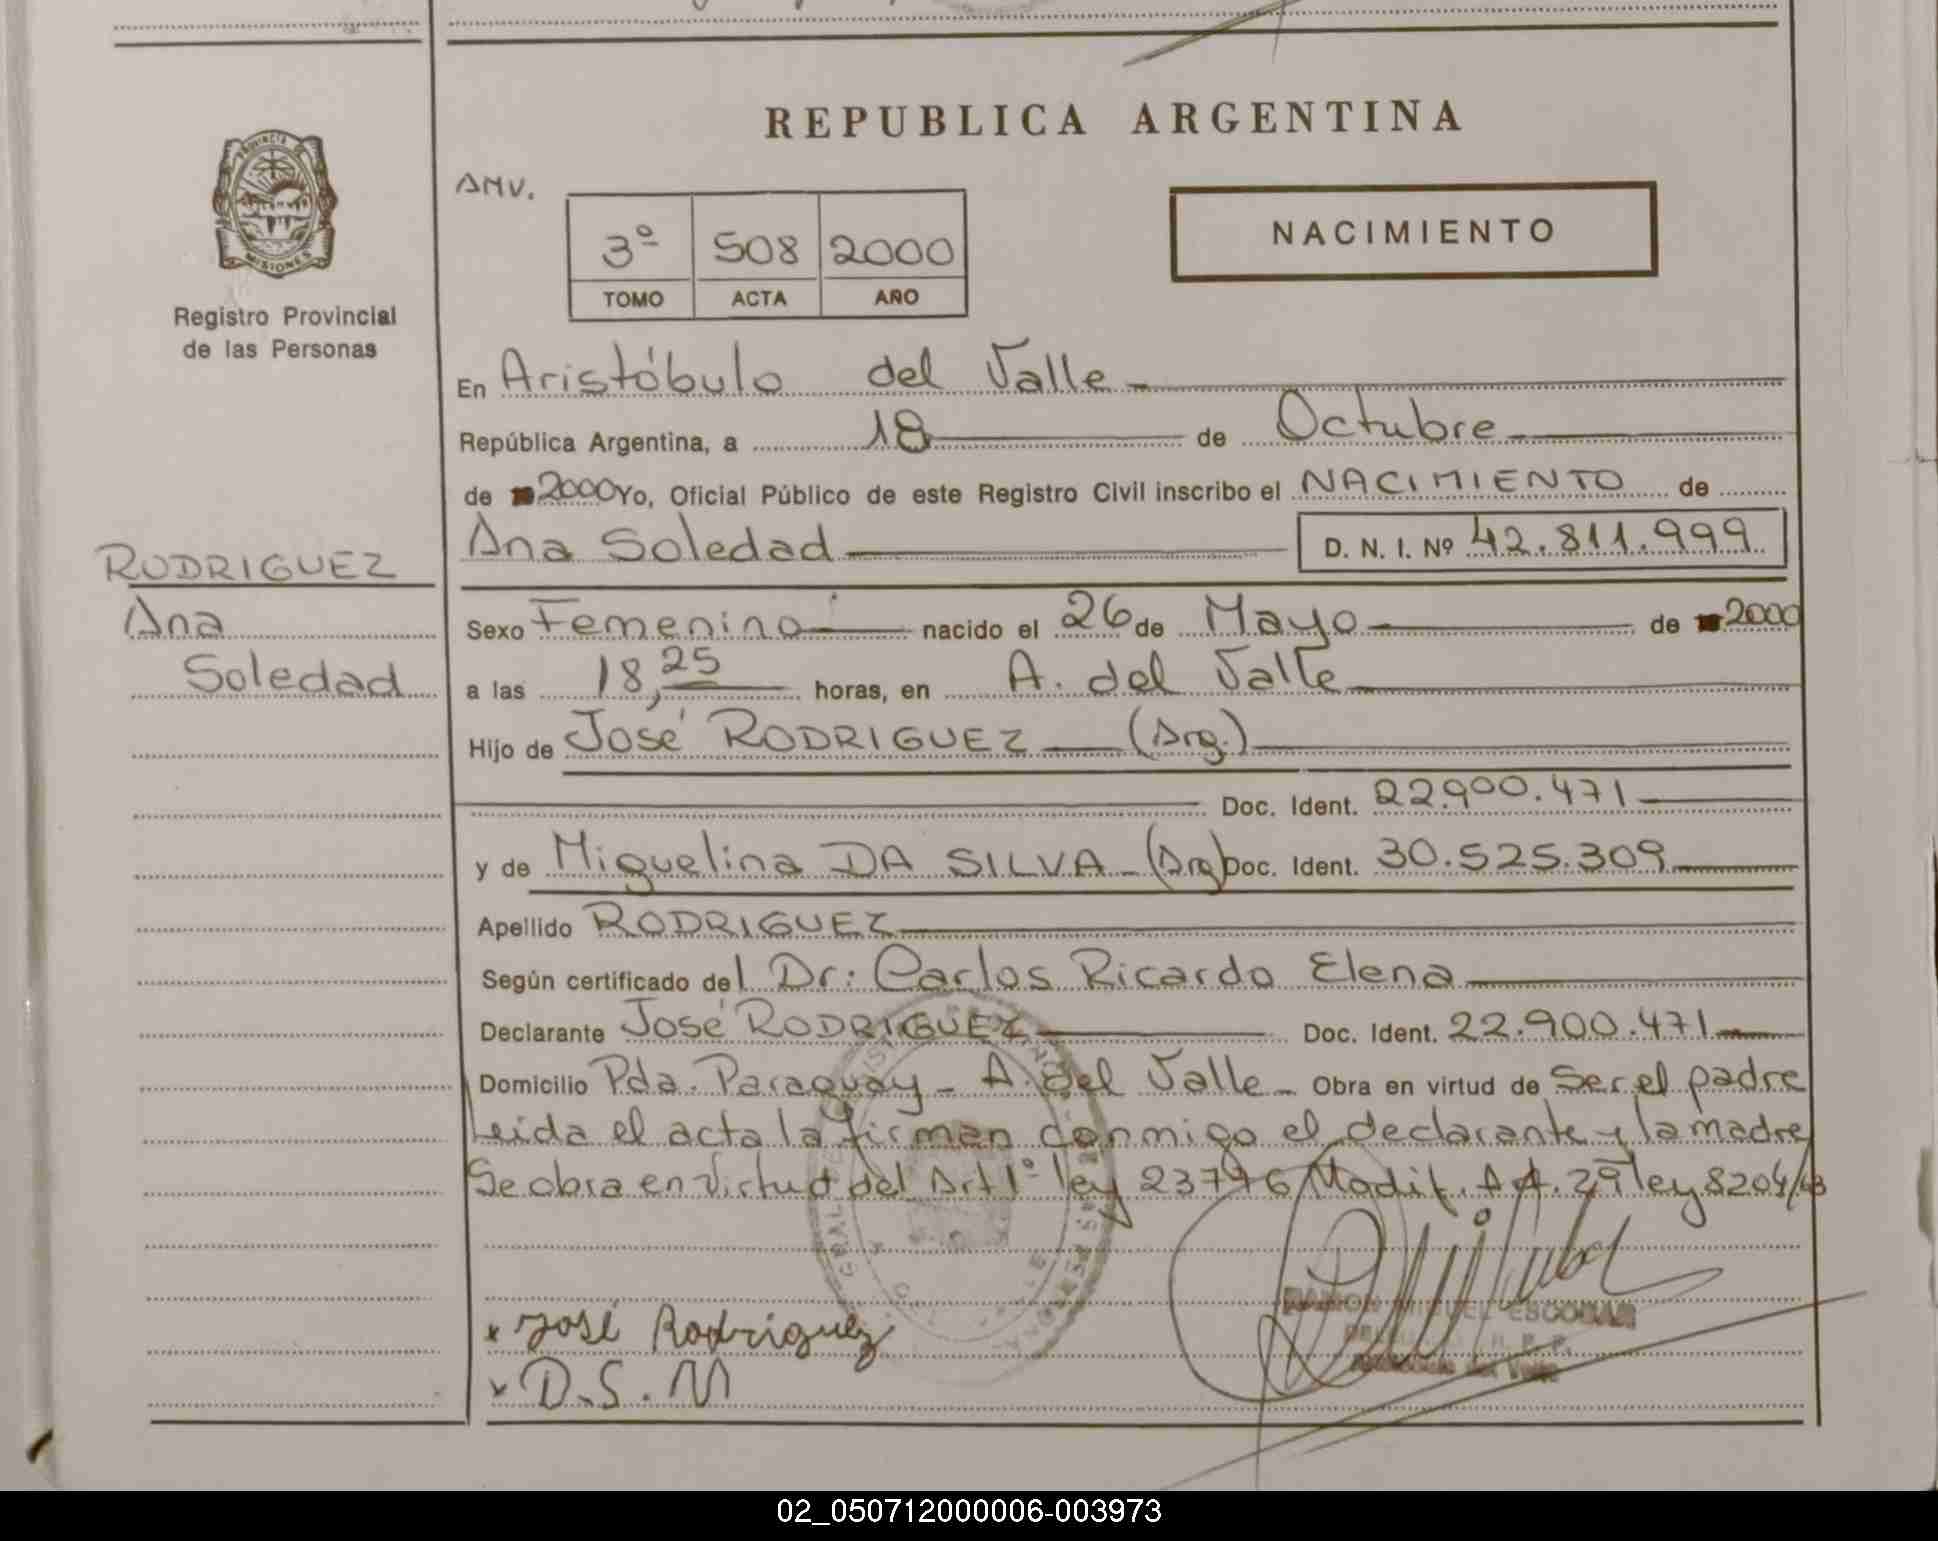 REPUBLICA ARGENTINA
PROVINCIA DE
MISIONES
Registro Provincial
de las Personas
AMV.
3º 508 2000
TOMO ACTA AÑO
NACIMIENTO
En Aristóbulo del Valle
República Argentina, a 18 de Octubre
de 2000 Yo, Oficial Público de este Registro Civil inscribo el NACIMIENTO de
Ana Soledad D. N. I. Nº 42.811.999
RODRIGUEZ
Ana
Soledad
Sexo Femenino nacido el 26 de Mayo de 2000
a las 18,25 horas, en A. del Valle
Hijo de José RODRIGUEZ (Arg.)
Doc. Ident. 22.900.471
y de Miguelina DA SILVA (Arg) Doc. Ident. 30.525.309
Apellido RODRIGUEZ
Según certificado del Dr: Carlos Ricardo Elena
Declarante José RODRIGUEZ Doc. Ident. 22.900.471
Domicilio Pda. Paraguay - A. del Valle - Obra en virtud de Ser el padre
Leida el acta la firman conmigo el declarante y la madre
Se obra en virtud del Art 1º ley 23776 Modif. A 29 ley 8204/63
x José Rodriguez
x D.S.M
RAMON MIGUEL ESCOBAR
02_050712000006-003973